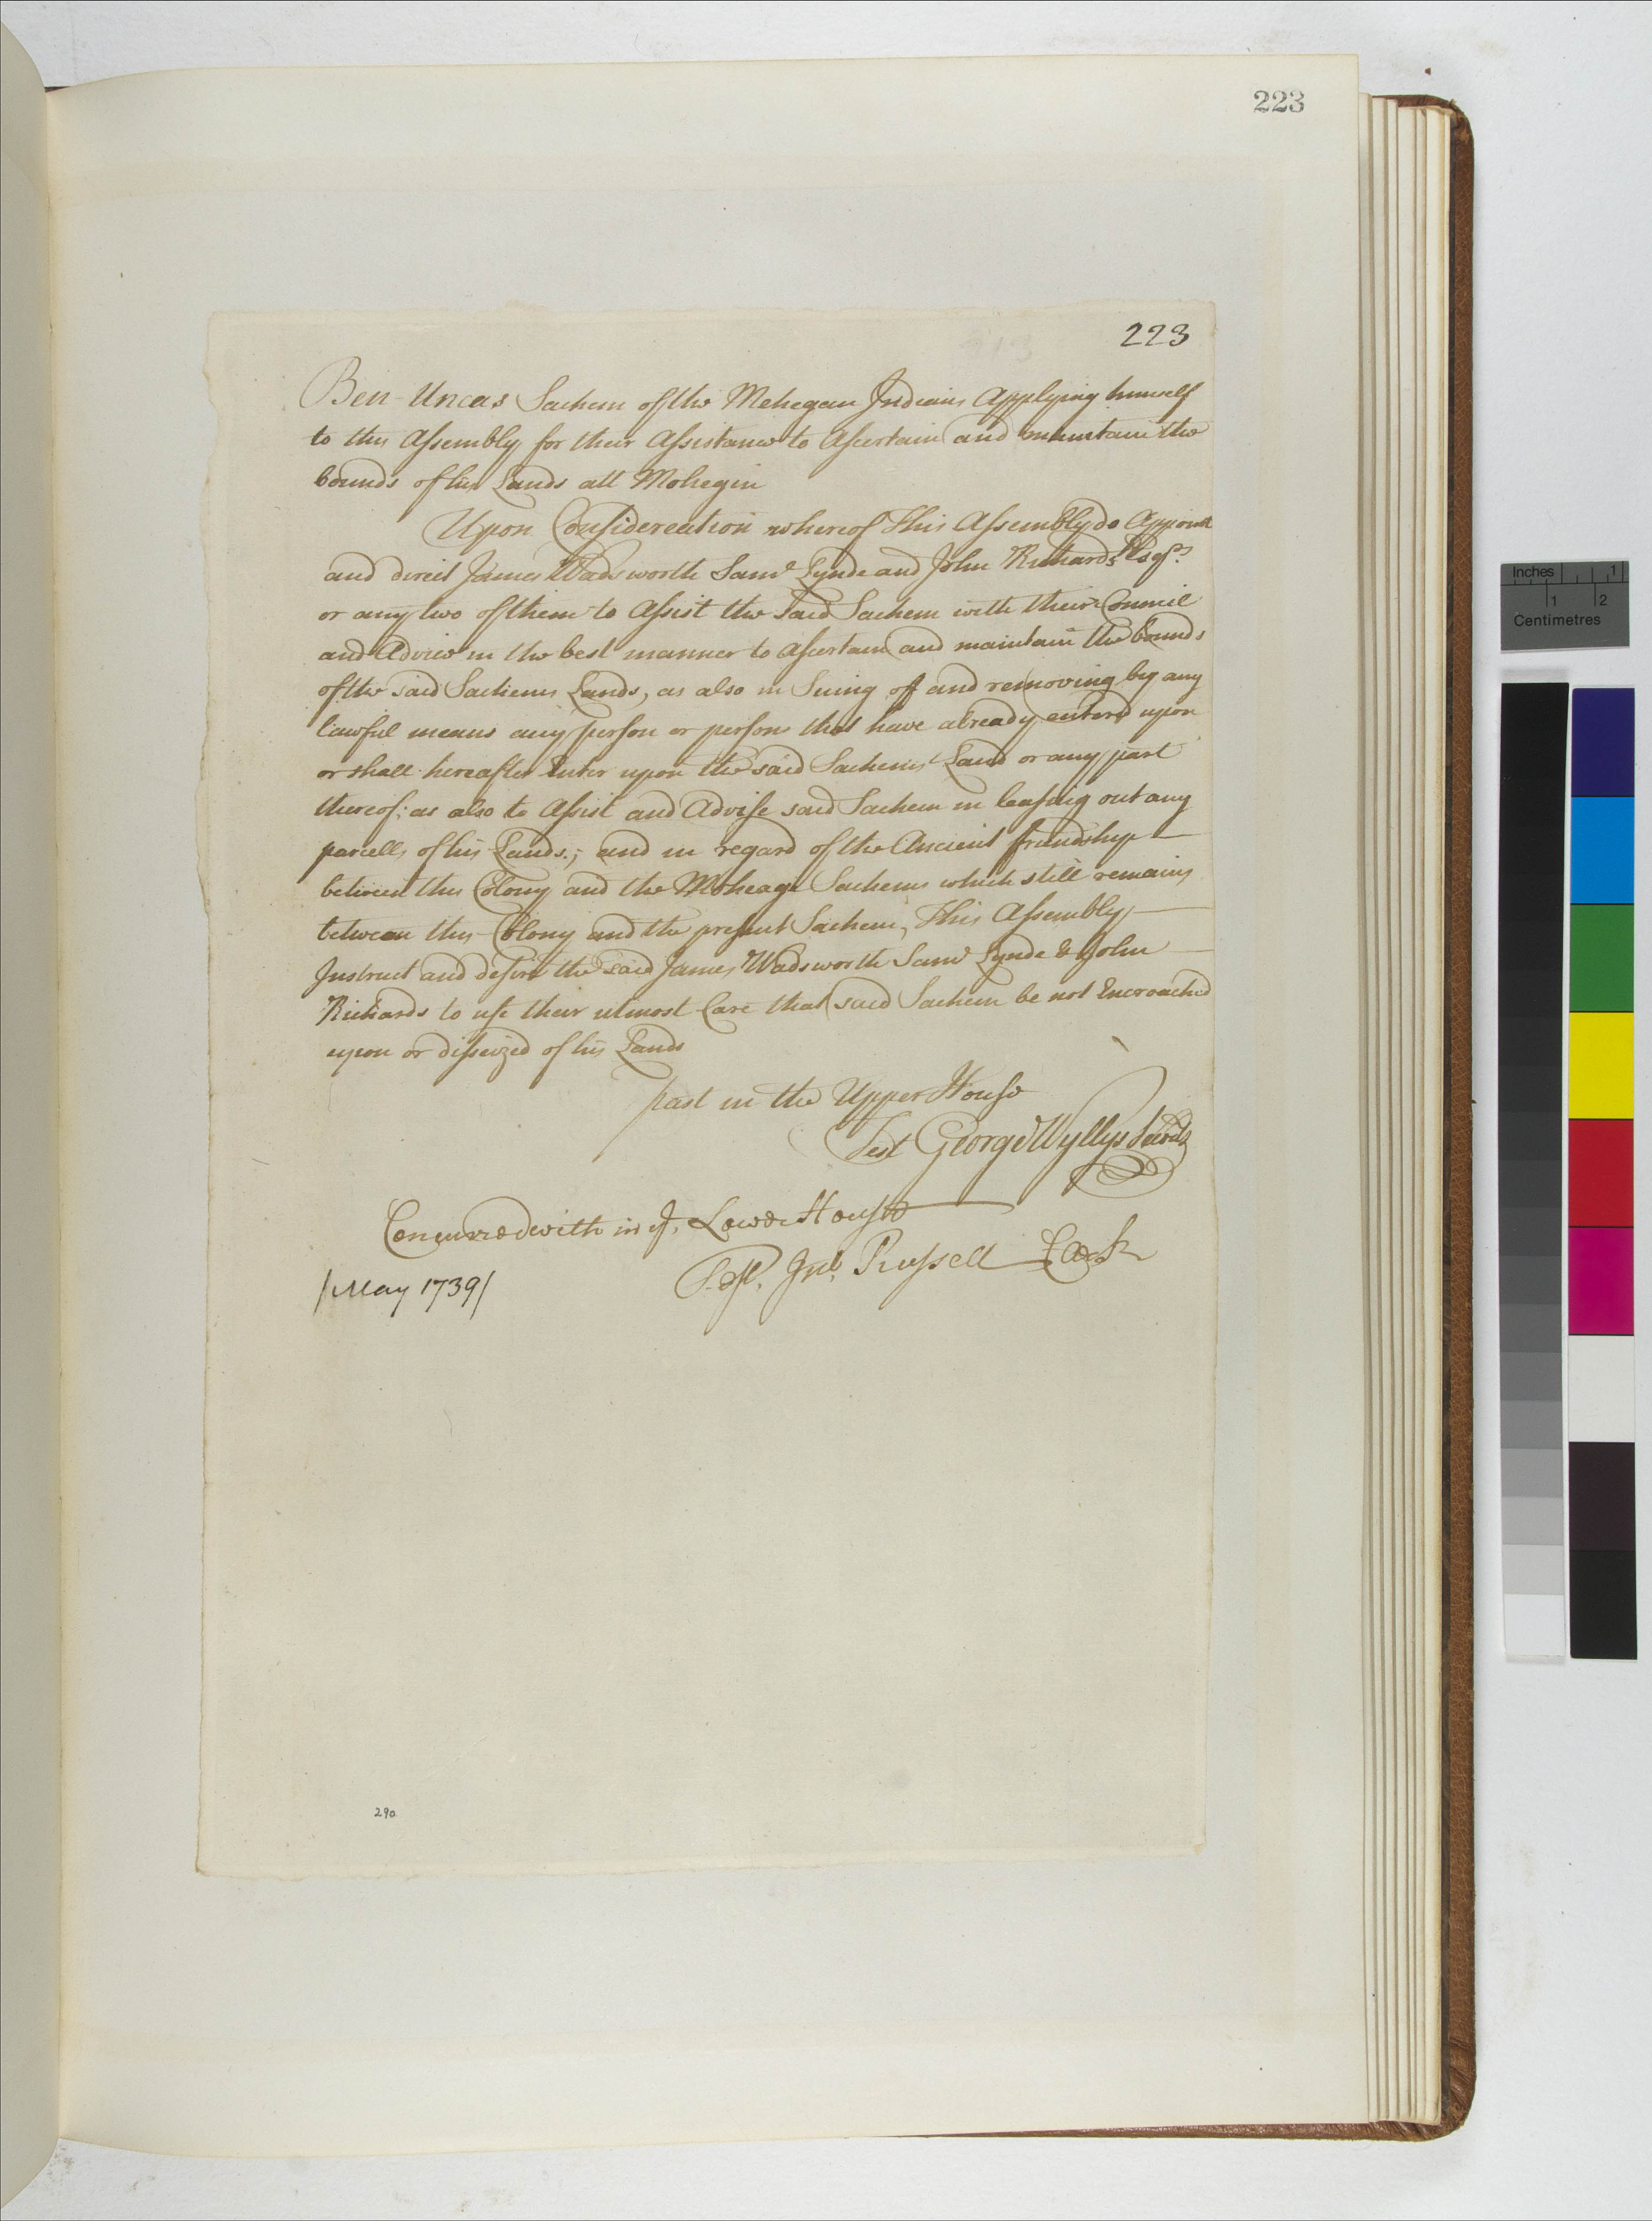 223
223
Ben Uncas Sachem of the Mohegan Indians Applying himself
to this Assembly for their Assistance to Ascertain and maintain the
bounds of his Lands att Mohegin
Upon Considereation whereof This Assembly do Appoint
and direct James Wadsworth Saml Lynde and John Richards Esqrs
or any two of them to Assist the said Sachem with their Council
and Advice in the best manner to Ascertain and maintain the bounds
of the said Sachems Lands, as also in Suing off and removing by any
lawful means any person or persons that have already enterd upon
or shall hereafter Enter upon the said Sachems Land or any part
thereof; as also to Assist and Advise said Sachem in leasing out any
parcells of his Lands; and in regard of the Ancient friendship
between this Colony and the Moheage Sachems which still remains
between this Colony and the present Sachem, This Assembly
Instruct and desire the said James Wadsworth Saml Lynde & John
Richards to use their utmost Care that said Sachem be not Encroached
upon or disseized of his Lands
past in the Upper House
Test George Wyllys Secrety
Concurred with in ye Lower House
Test. Jno. Russell Clerk
/May 1739/
290
Inches 1
1 2
Centimetres